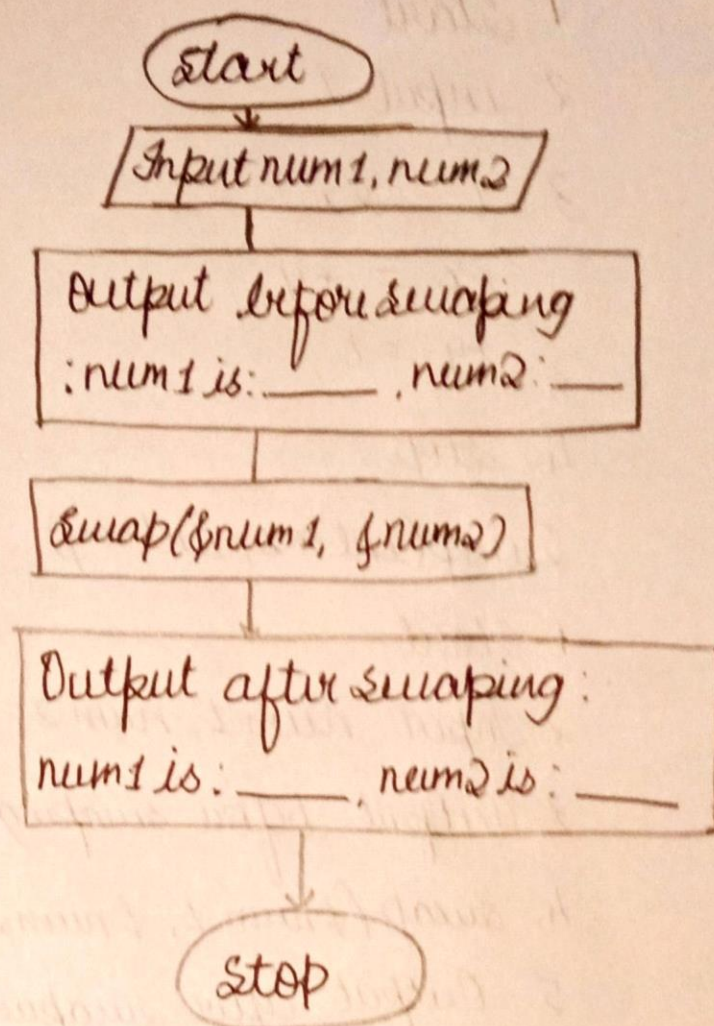 Start
Input num1, num2
Output before swaping
: num1 is: ____ , num2: __
Swap(&num1, &num2)
Output after swaping:
num1 is: ____, num2 is: ___
Stop